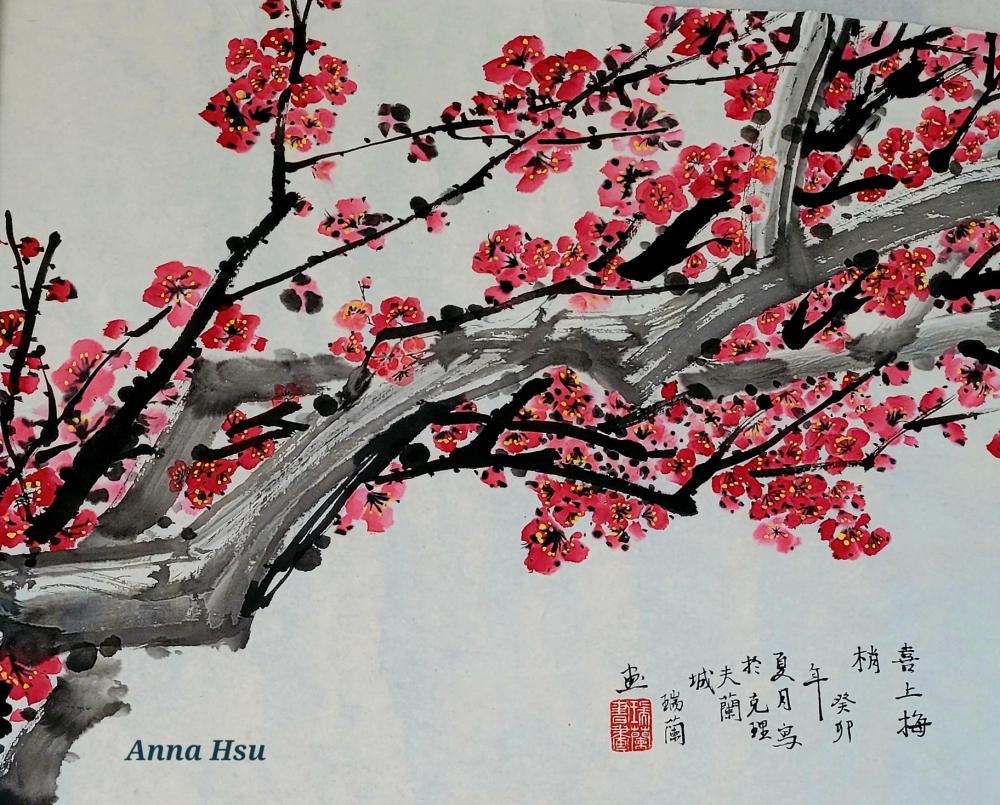 喜上梅
梢 癸卯
年
夏月寫
於克理
夫蘭
城
瑞蘭
畫
瑞蘭書畫
Anna Hsu